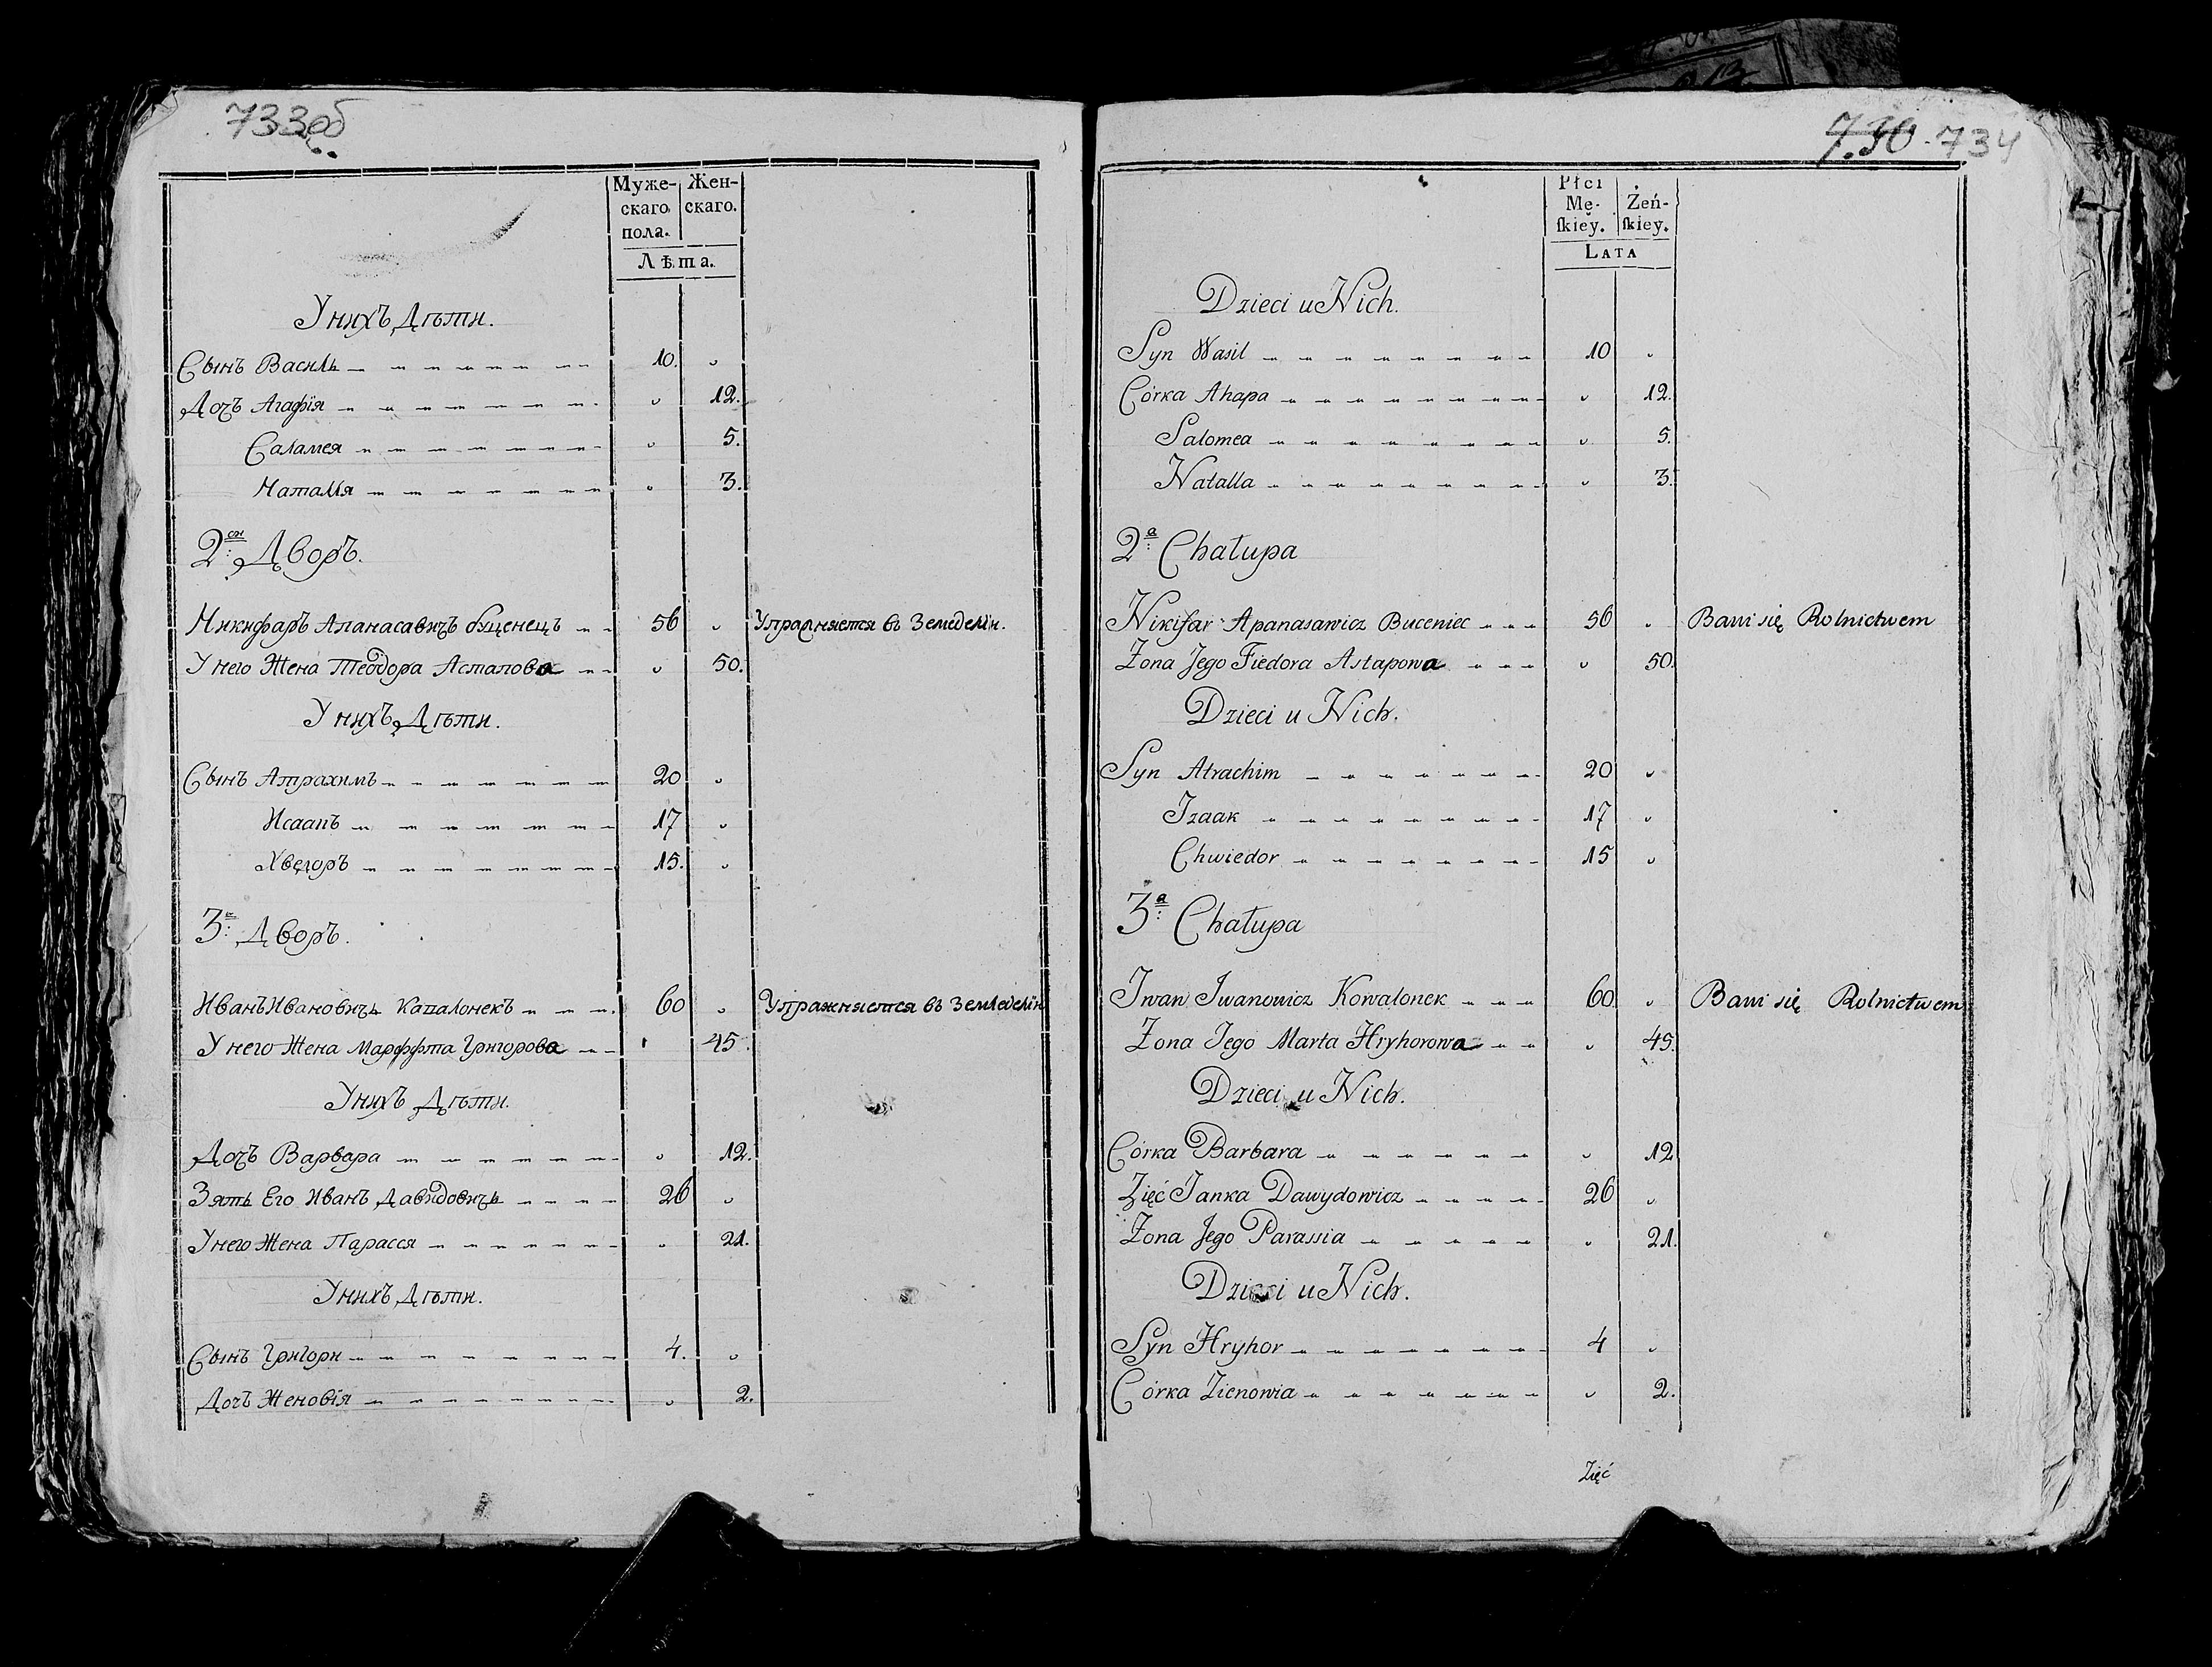 733об
Муже-
скаго
пола.
Жен-
скаго.
Лѣта.
У нихъ Дѣти.
Сынъ Василь 10.
Дочъ Агафія 12.
Саламея 5.
Наталля 3.
2ои Дворъ.
Никифаръ Апанасавичъ Буценецъ 56 Упражняется въ Земледелiи.
У него Жена Теодора Астапова 50.
У нихъ Дѣти.
Сынъ Атрахимъ 20
Исаапъ 17
Хведоръ 15.
3: Дворъ.
Иванъ Ивановичъ Капалонекъ 60 Упражняется въ Земледелiи
У него Жена Марффта Григорова 45.
У нихъ Дѣти.
Дочъ Варвара 12.
Зять Его Иванъ Давидовичь 26
У него Жена Парасся 21.
У нихъ Дѣти.
Сынъ Григори 4.
Дочъ Женовія 2.
730 734
Płci
Mę-
ſkiey.
Żeń-
ſkiey.
LATA
Dzieci u Nich.
Syn Wasil 10
Córka Ahapa 12.
Salomea 5.
Natalla 3.
2a Chałupa
Nikifar Apanasawicz Buceniec 56 Bawi się Rolnictwem
Żona Jego Fiedora Astapowa 50.
Dzieci u Nich.
Syn Atrachim 20
Izaak 17
Chwiedor 15
3a Chałupa
Iwan Iwanowicz Kowalonek 60 Bawi się Rolnictwem
Żona Jego Marta Hryhorowa 45.
Dzieci u Nich.
Córka Barbara 12
Zięć Janka Dawydowicz 26
Żona Jego Parassia 21.
Dzieci u Nich.
Syn Hryhor 4
Córka Zienowia 2.
Zięć